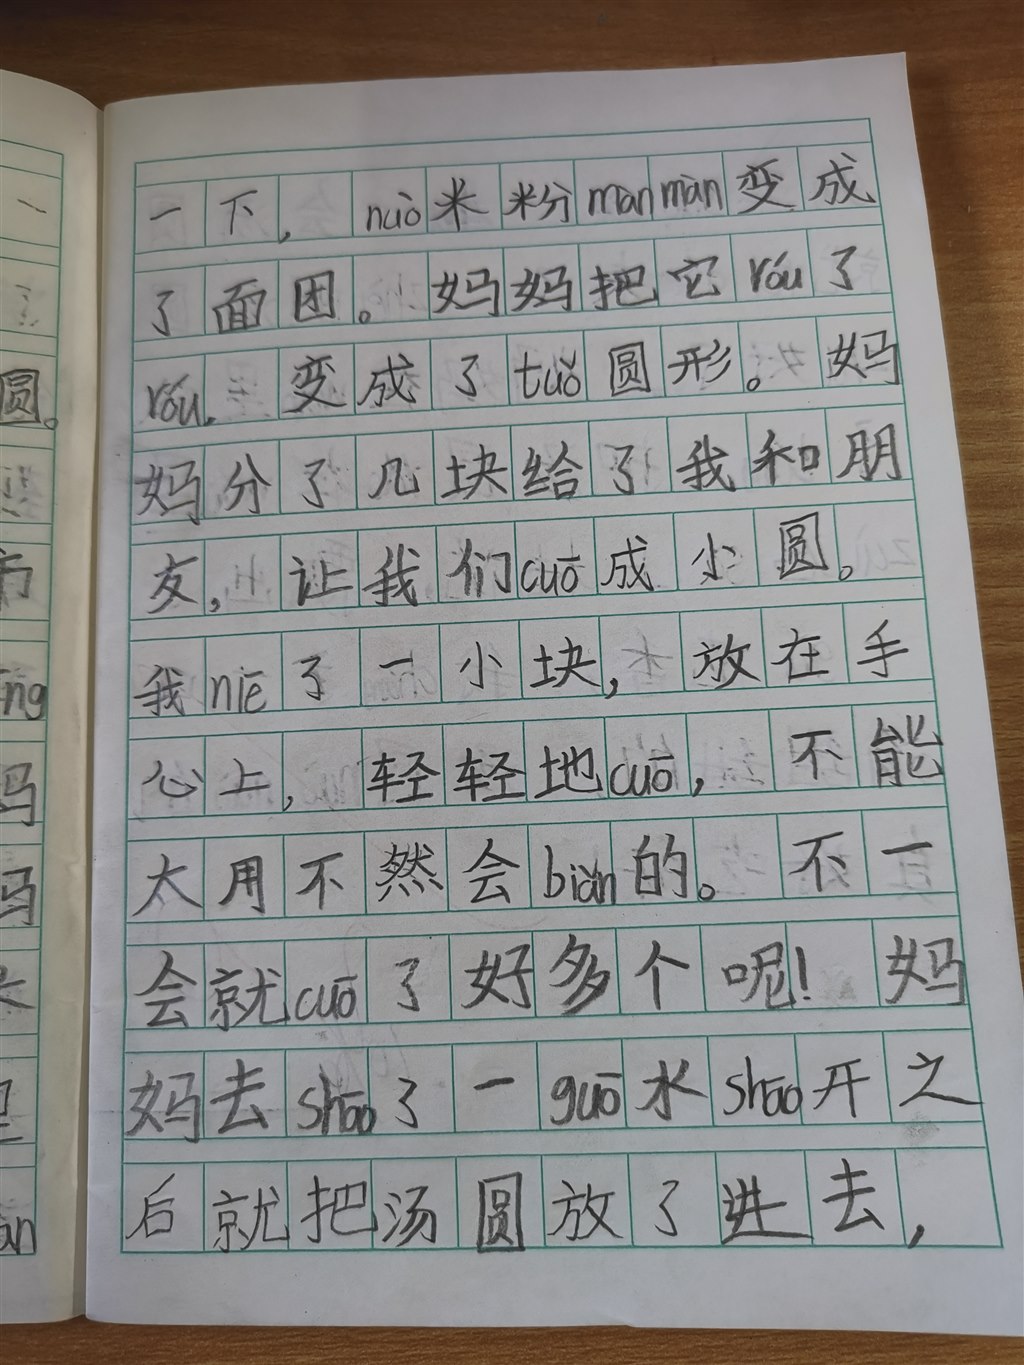 一下，nuò米粉mànmàn变成
了面团。妈妈把它róu了
róu，变成了tuǒ圆形。妈
妈分了几块给了我和朋
友，让我们cuō成小圆。
我niē了一小块，放在手
心上，轻轻地cuō，不能
太用不然会biǎn的。不一
会就cuō了好多个呢！妈
妈去shāo了一guō水shāo开之
后就把汤圆放了进去，
圆。
市
妈
妈